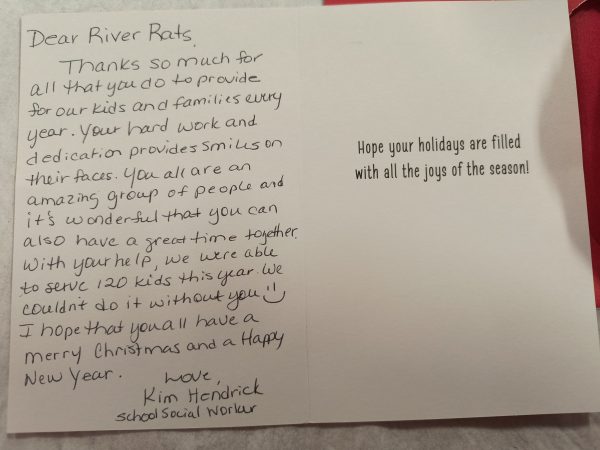 Dear River Rats,
Thanks so much for
all that you do to provide
for our kids and families every
year. Your hard work and
dedication provides smiles on
their faces. You all are an
amazing group of people and
it's wonderful that you can
also have a great time together.
With your help, we were able
to serve 120 kids this year. We
couldn't do it without you
I hope that you all have a
merry Christmas and a Happy
New Year.
Love,
Kim Hendrick
School Social Worker
Hope your holidays are filled
with all the joys of the season!